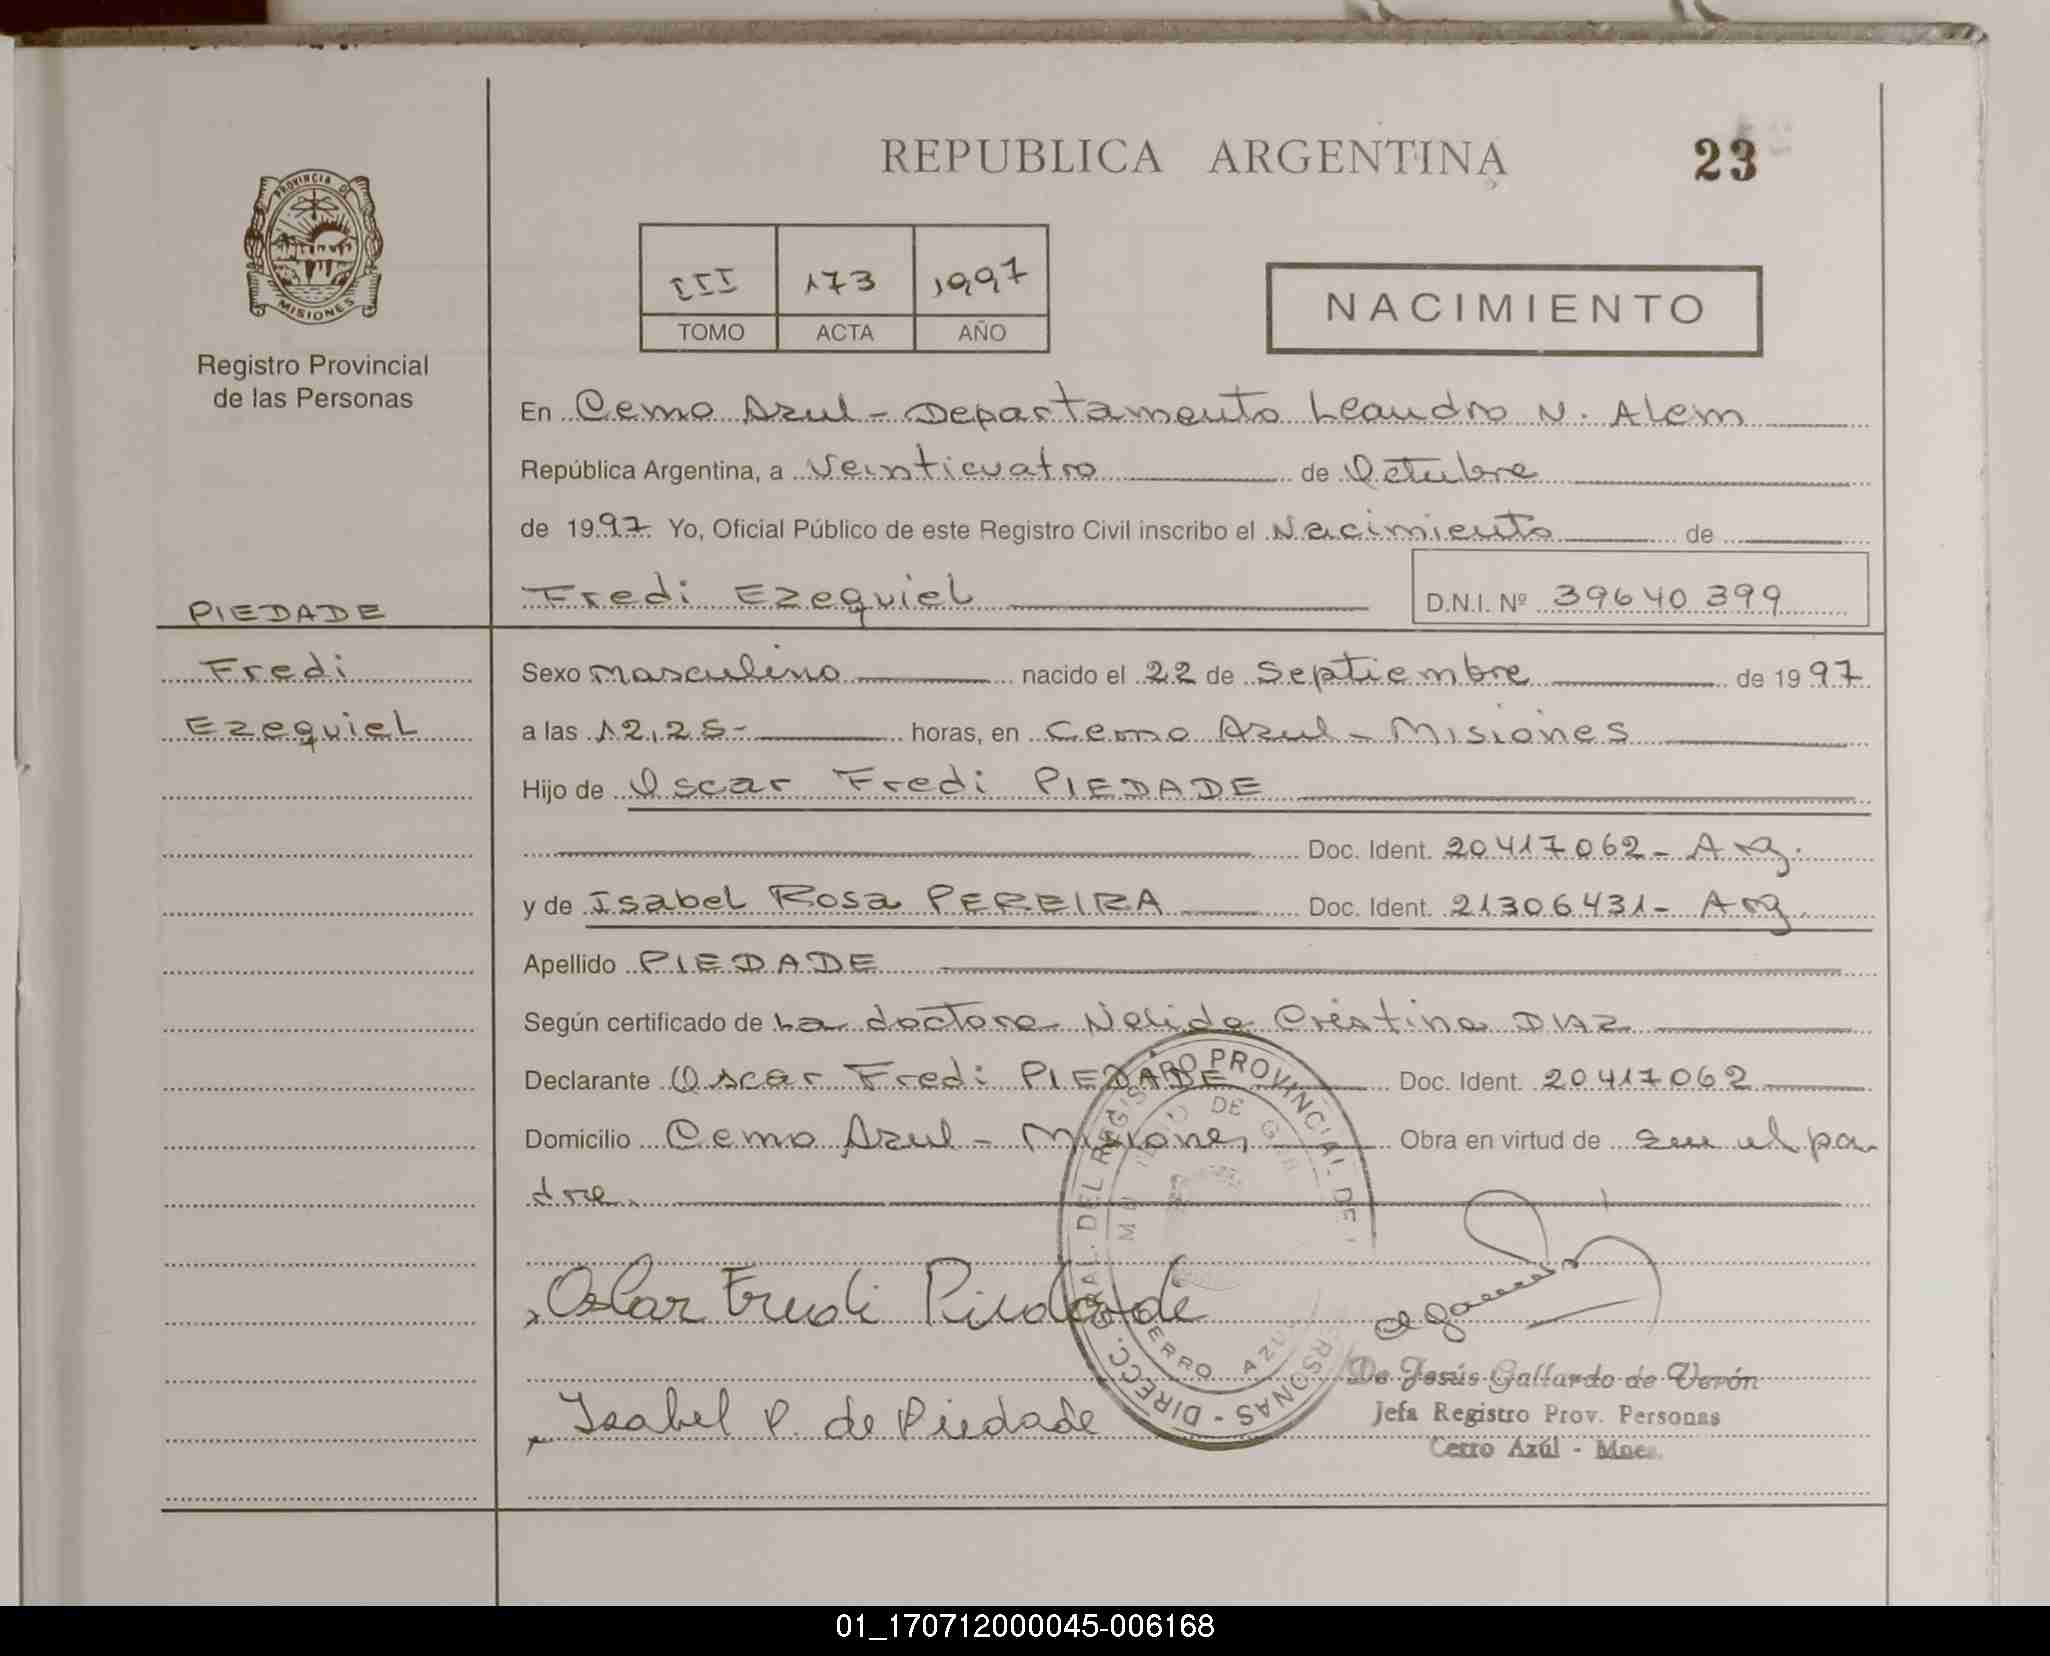 REPUBLICA ARGENTINA
23
PROVINCIA DE
MISIONES
Registro Provincial
de las Personas
III 173 1997
TOMO ACTA AÑO
NACIMIENTO
En Cerro Azul - Departamento Leandro N. Alem
República Argentina, a Veinticuatro de Octubre
de 1997 Yo, Oficial Público de este Registro Civil inscribo el Nacimiento de
Fredi Ezequiel D.N.I. Nº 39640399
PIEDADE
Fredi
Ezequiel
Sexo masculino nacido el 22 de Septiembre de 1997
a las 12,25- horas, en Cerro Azul - Misiones
Hijo de Oscar Fredi PIEDADE
Doc. Ident. 20417062- Arg.
y de Isabel Rosa PEREIRA Doc. Ident. 21306431- Arg.
Apellido PIEDADE
Según certificado de La doctora Nelida Cristina DIAZ
Declarante Oscar Fredi PIEDADE Doc. Ident. 20417062
Domicilio Cerro Azul - Misiones Obra en virtud de ser el pa-
dre.
DIRECC. GRAL. DEL REGISTRO PROVINCIAL DE PERSONAS -
CERRO AZUL
Oscar Fredi Piedade
Isabel P. de Piedade
De Jesús Gallardo de Verón
Jefa Registro Prov. Personas
Cerro Azúl - Mnes.
01_170712000045-006168